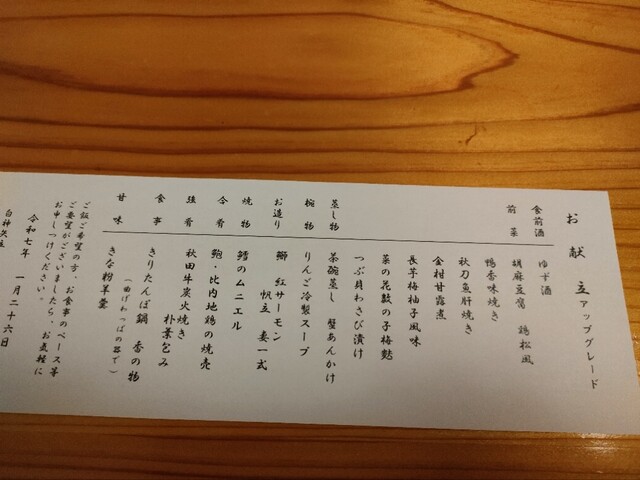 お献立 アップグレード
食前酒 ゆず酒
前菜 胡麻豆腐 鶏松風
鴨香味焼き
秋刀魚肝焼き
金柑甘露煮
長芋梅柚子風味
菜の花数の子梅麩
つぶ貝わさび漬け
蒸し物 茶碗蒸し 蟹あんかけ
椀物 りんご冷製スープ
お造り 鰤 紅サーモン
帆立 妻一式
焼物 鱈のムニエル
合肴 鮑・比内地鶏の焼売
強肴 秋田牛炭火焼き
朴葉包み
食事 きりたんぽ鍋 香の物
(曲げわっぱの器で)
甘味 きな粉羊羹
ご飯ご希望の方・お食事のペース等
ご要望がございましたら・お気軽に
お申しつけください。
令和七年 一月二十六日